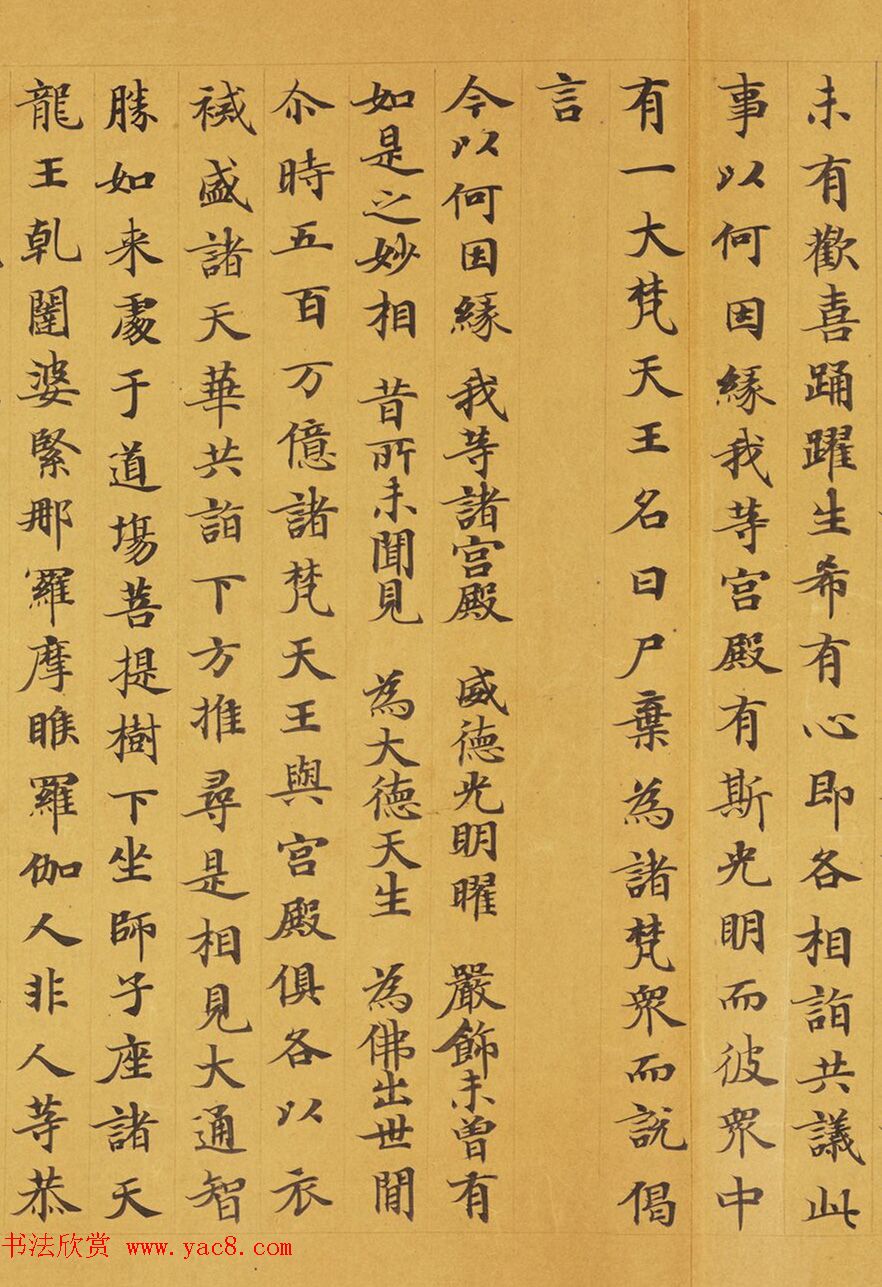 未有歡喜踊躍生希有心即各相詣共議此
事以何因緣我等宮殿有斯光明而彼衆中
有一大梵天王名曰尸棄為諸梵衆而說偈
言
今以何因緣 我等諸宮殿 威德光明曜 嚴飾未曾有
如是之妙相 昔所未聞見 為大德天生 為佛出世間
尒時五百万億諸梵天王與宮殿俱各以衣
祴盛諸天華共詣下方推尋是相見大通智
勝如来處于道場菩提樹下坐師子座諸天
龍王乹闥婆緊那羅摩睺羅伽人非人等恭
书法欣赏 www.yac8.com